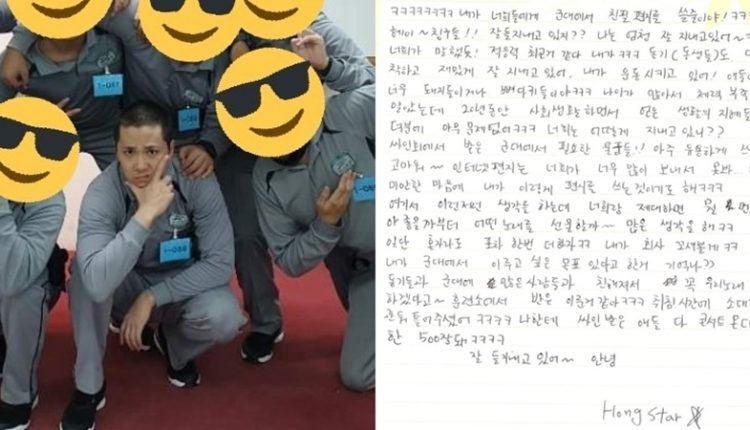 1-081
1-089
1-088
ㅋㅋㅋㅋㅋㅋㅋㅋ 내가 너희들에게 군대에서 친필 편지를 쓸줄이야!
헤이~ 친구들!! 잘들지내고 있지?? 나는 엄청 잘 지내고있어~
너희가 말했듯! 적응력 최고인거 같다 내가ㅋㅋ 동기(동생들)도
착하고 재밌게 잘 지내고 있어. 내가 운동 시키고 있어!
너무 돼지들이거나 뼈다귀들이야ㅋㅋ 나이가 많아서 체력
않았는데 20년동안 사회생활하면서 얻은 생활의 지혜
덕분에 아무 문제없어ㅋㅋ 너희는 어떻게 지내고 있니??
싸인회에서 받은 군대에서 필요한 물품들!! 아주 유용하게
고마워~ 인터넷편지는 너희가 너무 많이 보내서 못봐
미안한 마음에 내가 이렇게 편지를 쓰는것이기도 해ㅋㅋㅋ
여기서 이런저런 생각을 하는데 너희랑 제대하면 뭘
아 좋을까부터 어떤노래를 선물할까~ 많은 생각을 해ㅋㅋ
일단 혼자라도 콘 한번 더하자ㅋㅋ 내가 회사 꼬셔볼게ㅋㅋ
내가 군대에서 이루고 싶은 목표 있다고 한거 기억나??
동기들과 군대에 많은사람들과 친해져서 꼭 우리노래
하겠다고~ 훈련소에서 반은 이룬거 같아ㅋㅋㅋ 취침시간에
틀어주셨어 ㅋㅋㅋㅋ 나한테 싸인 받은 애들 다 콘서트
한 500장돼ㅋㅋㅋㅋ
잘 들 지내고 있어~ 안녕
Hong Star